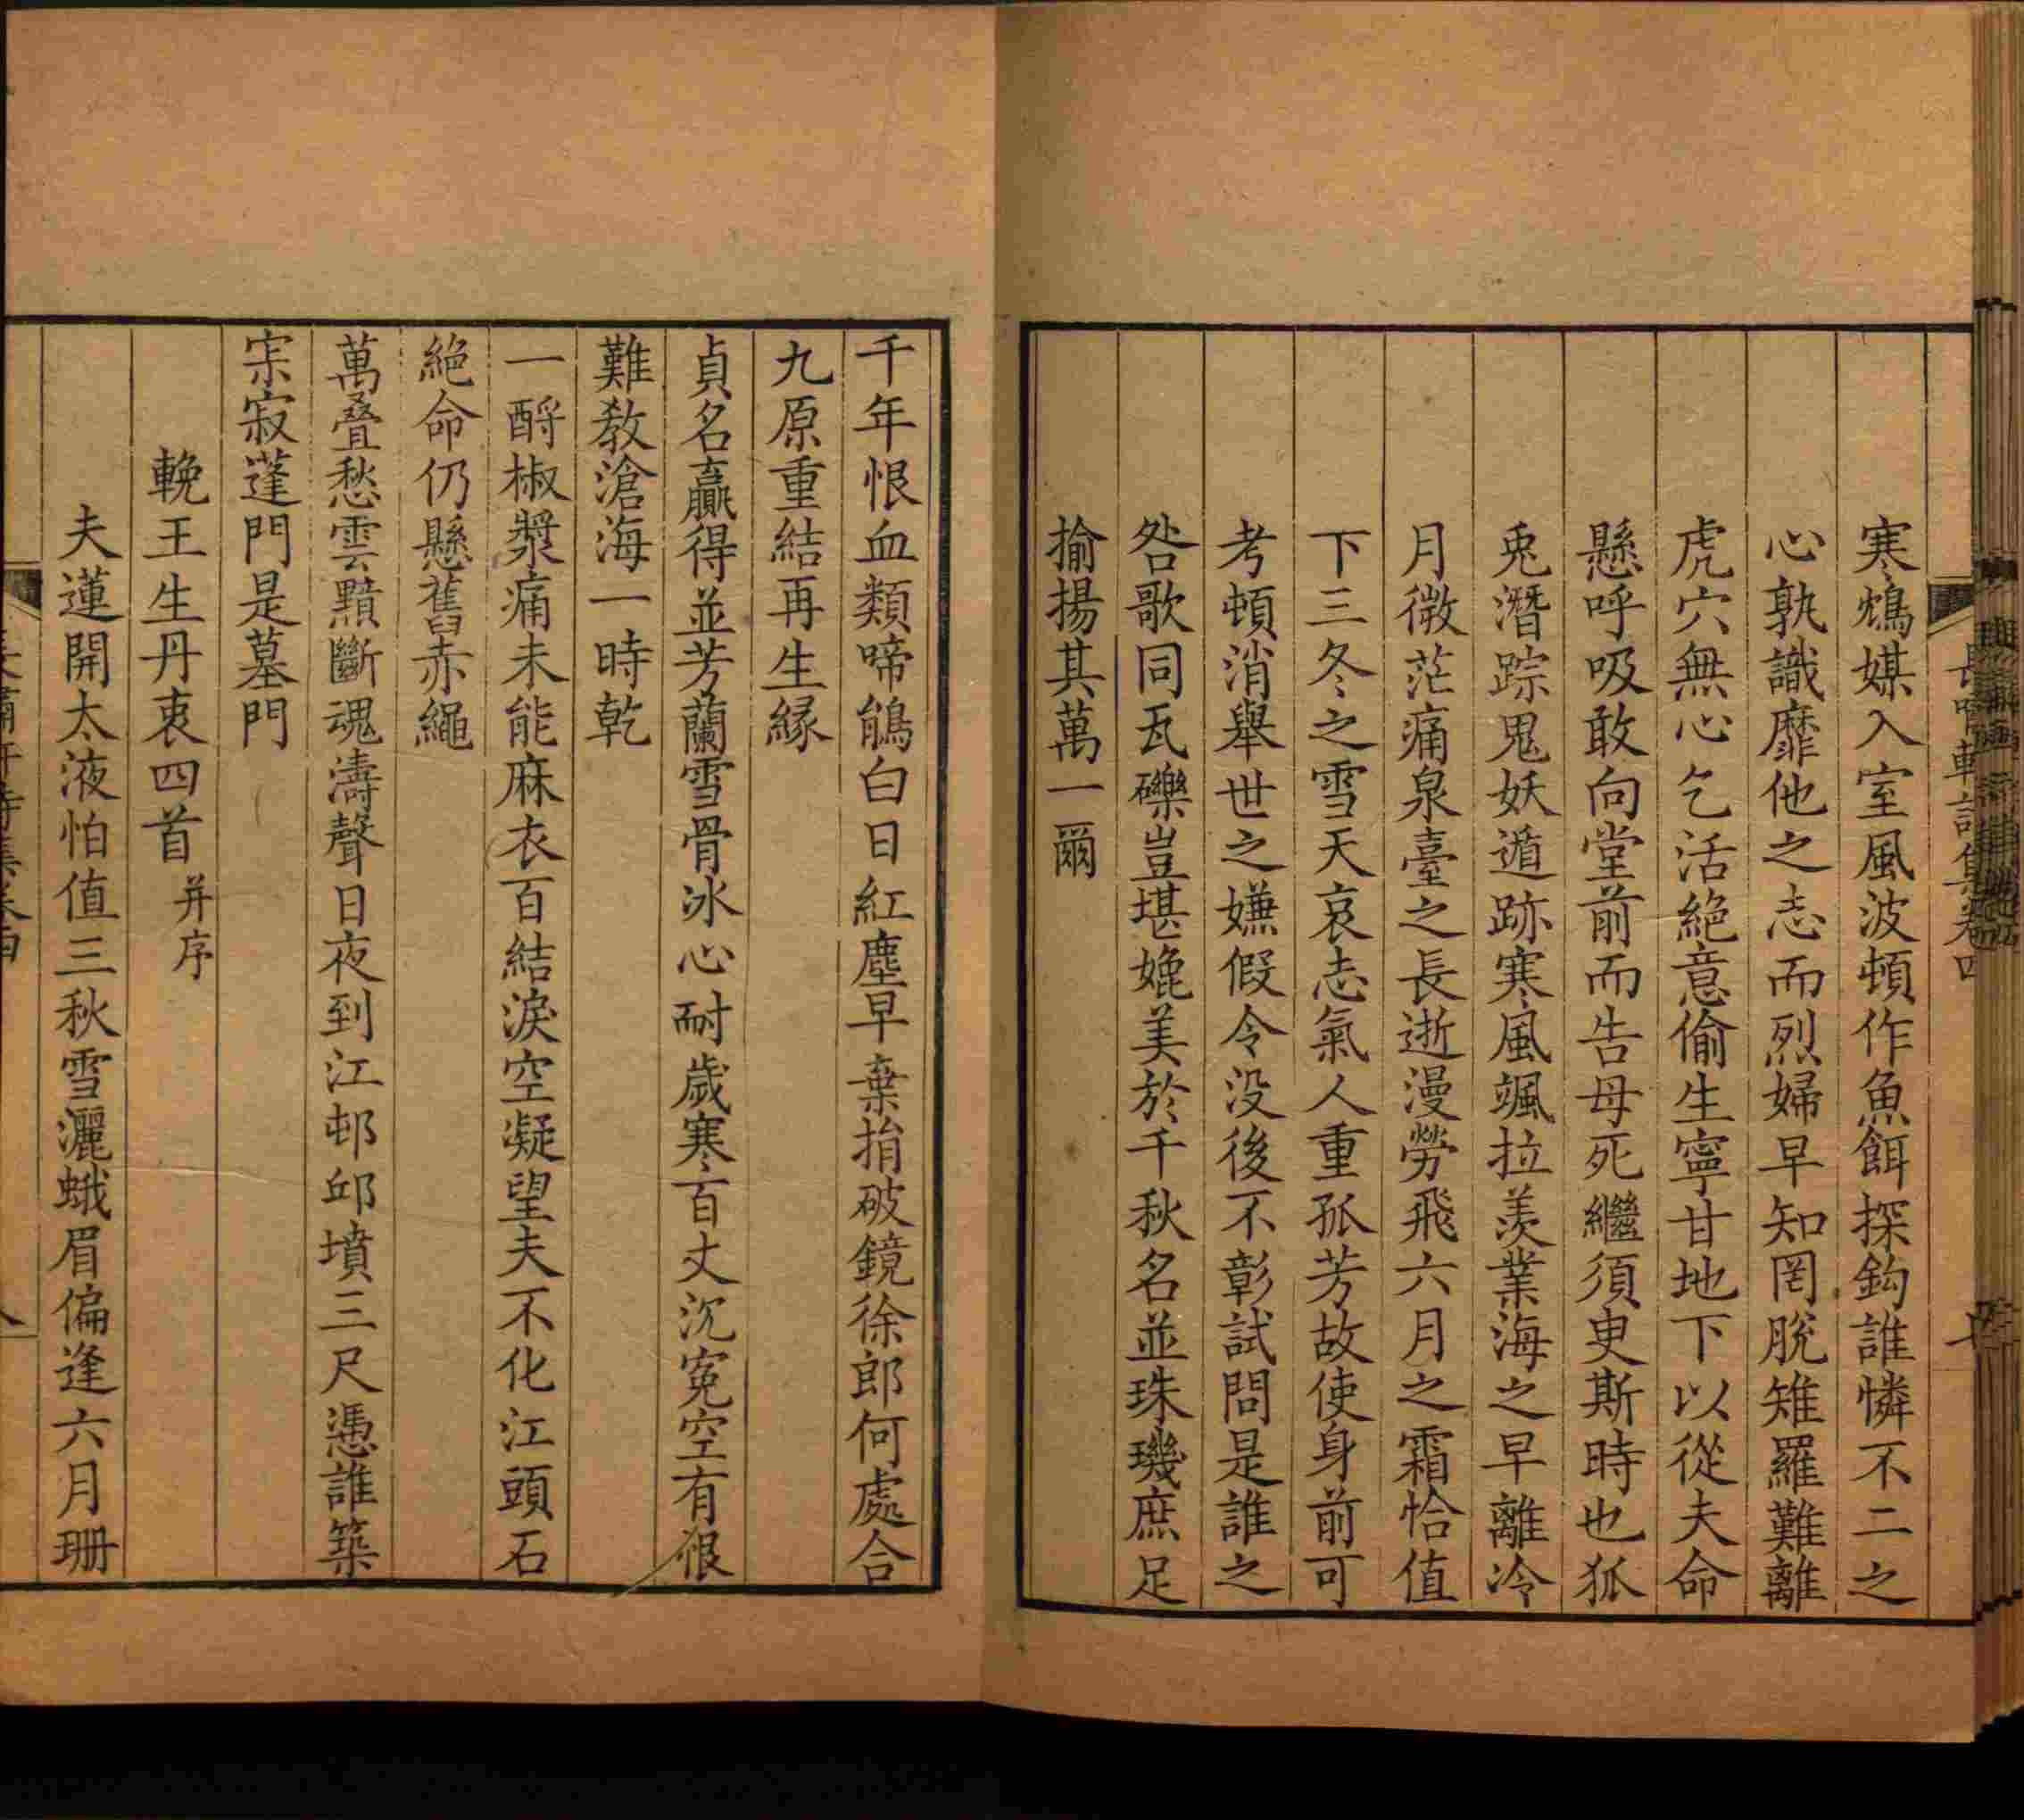 寒鴆媒入室風波頓作魚餌探鈎誰憐不二之
心孰識靡他之志而烈婦早知罔脫雉羅難離
虎穴無心乞活絕意偷生寧甘地下以從夫命
懸呼吸敢向堂前而告母死繼須臾斯時也狐
兎潛踪鬼妖遁跡寒風颯拉羨業海之早離冷
月微茫痛泉臺之長逝漫勞飛六月之霜恰值
下三冬之雪天哀志氣人重孤芳故使身前可
考頓消舉世之嫌假令没後不彰試問是誰之
咎歌同瓦礫豈堪媲美於千秋名並珠璣庶足
揄揚其萬一爾
千年恨血類啼鵑白日紅塵早棄捐破鏡徐郎何處合
九原重結再生緣
貞名贏得並芳蘭雪骨冰心耐歲寒百丈沉寃空有恨
難教滄海一時乾
一酹椒漿痛未能麻衣百結淚空凝望夫不化江頭石
絕命仍懸舊赤繩
萬疊愁雲黯斷魂濤聲日夜到江邨邱墳三尺憑誰築
宗寂蓬門是墓門
輓王生丹衷四首并序
夫蓮開太液怕值三秋雪灑蛾眉偏逢六月珊